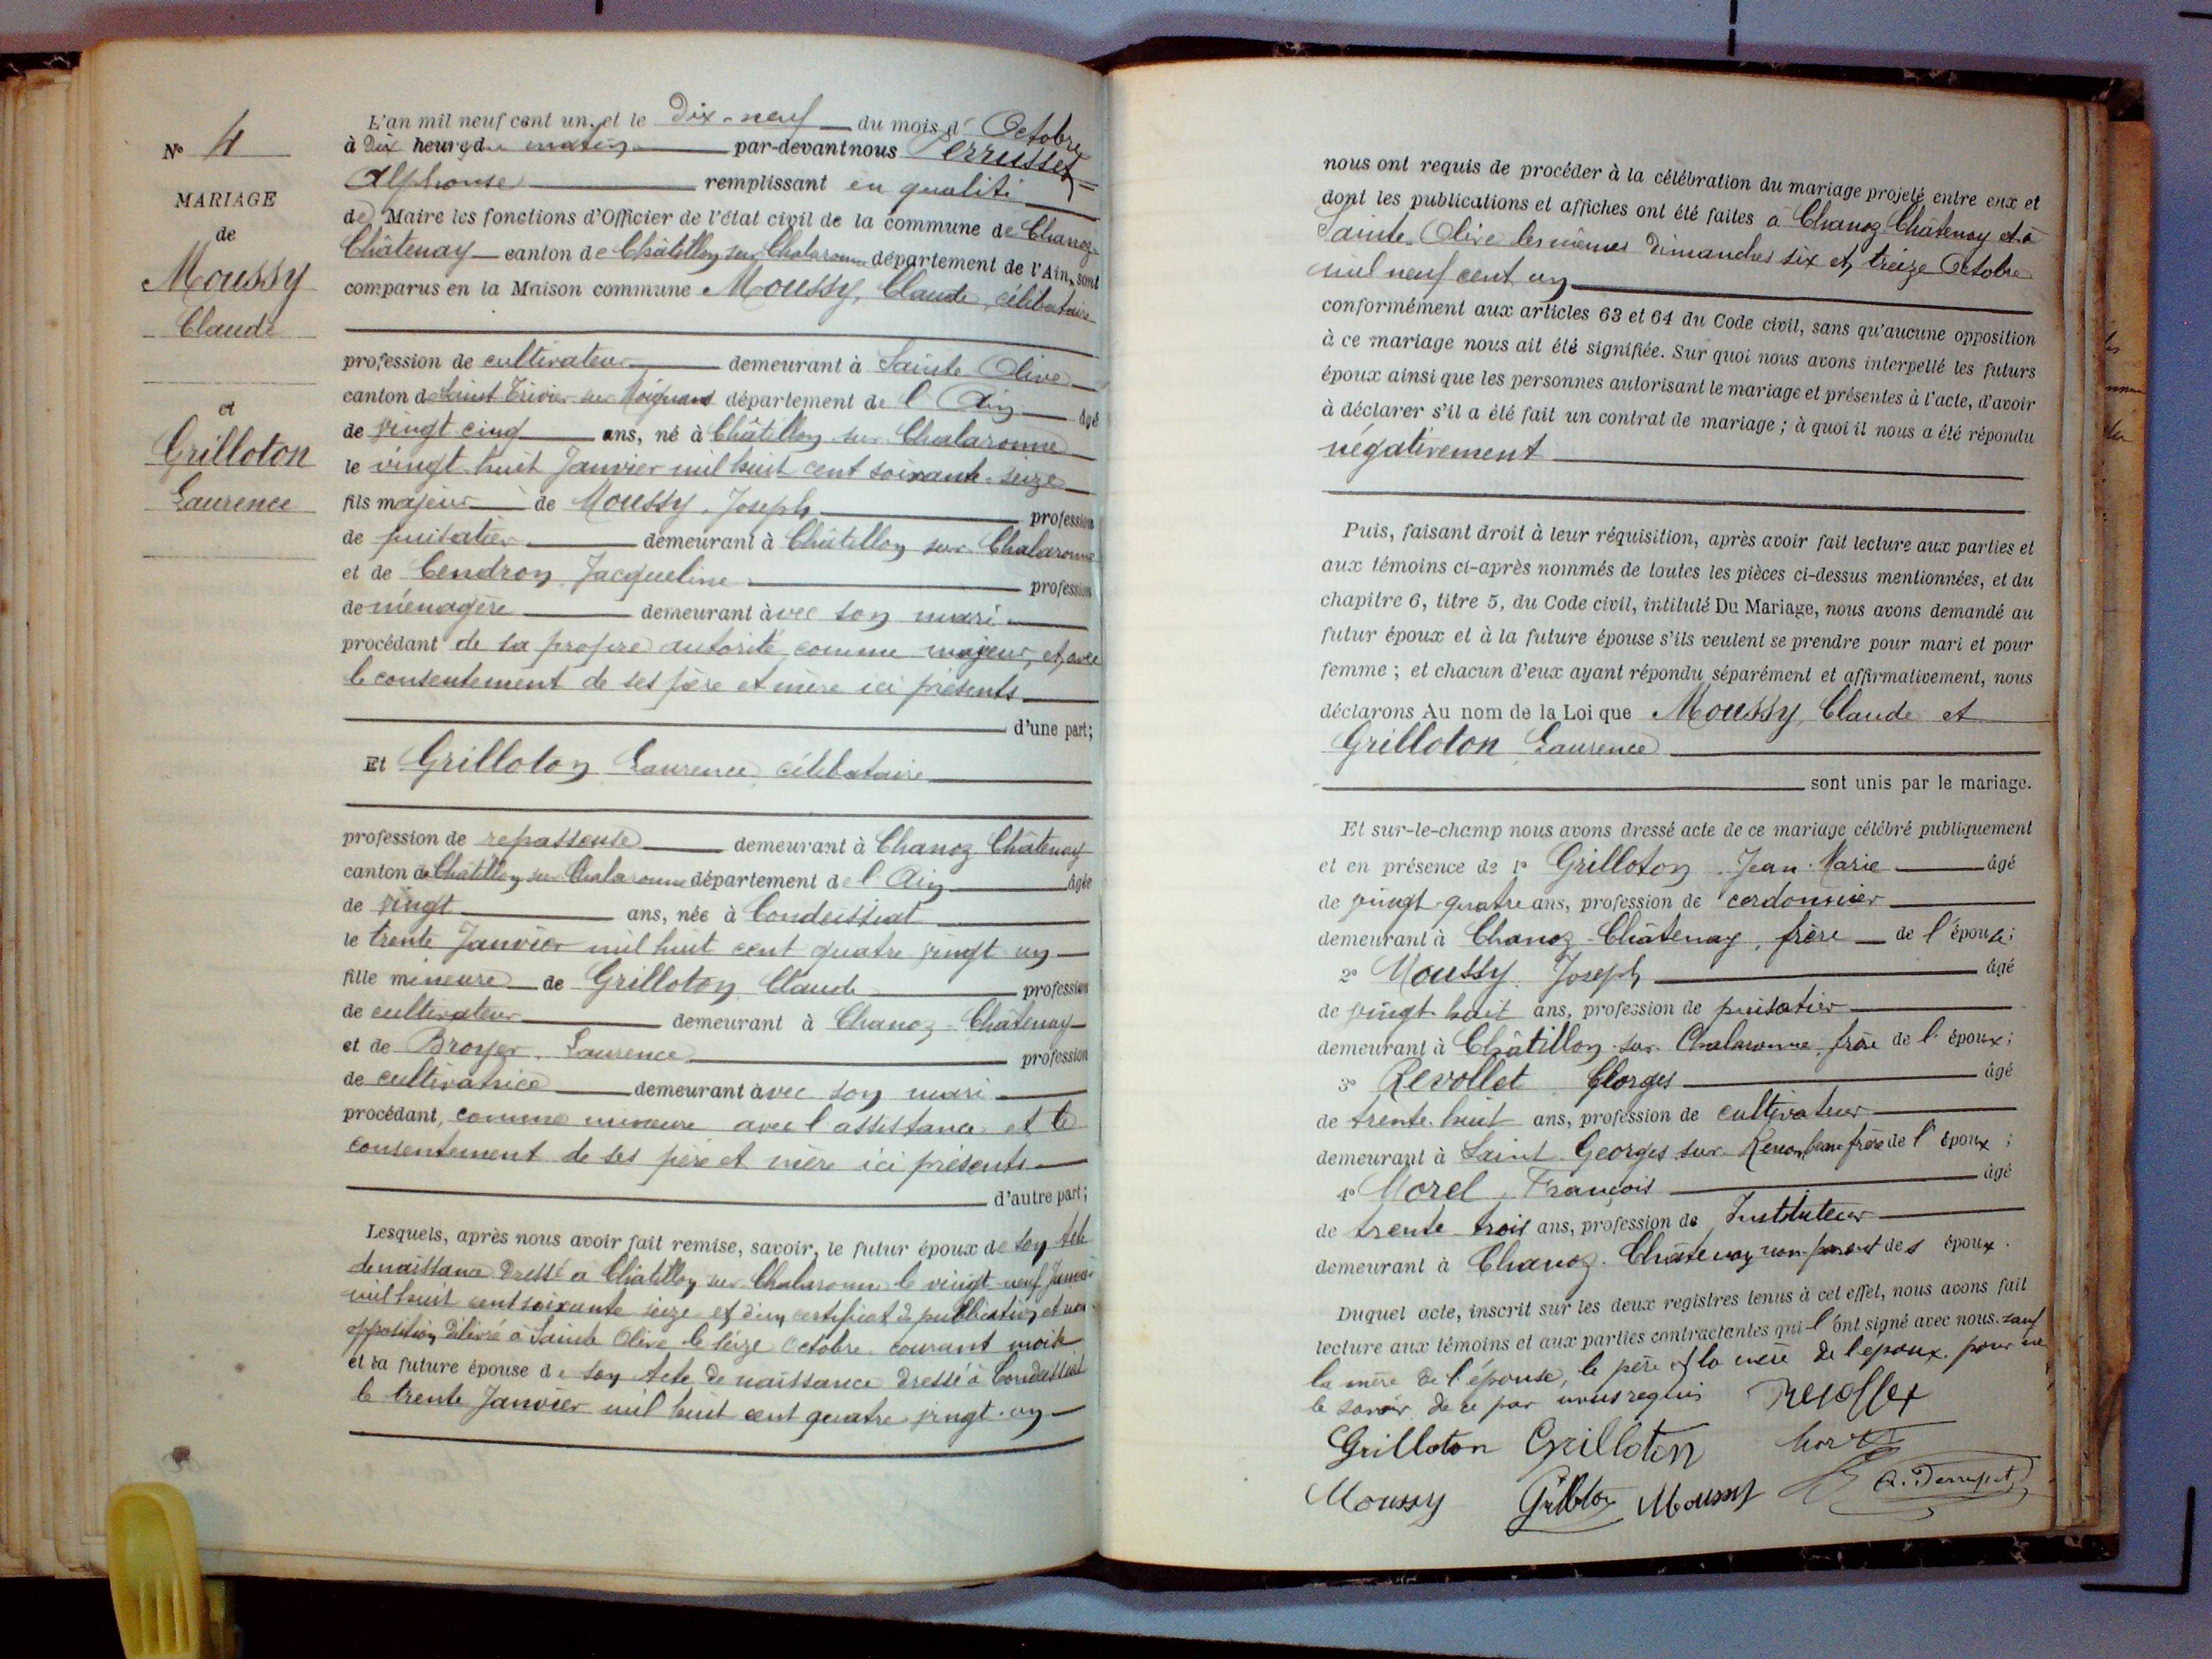 N° 4
MARIAGE
de
Moussy
Claude
et
Grilloton
Laurence
L'an mil neuf cent un, et le Dix-neuf du mois d' Octobre
à Dix heures du matin par-devant nous Perrusset
Alphonse remplissant en qualité
de Maire les fonctions d'Officier de l'état civil de la commune de Chanoz-
Châtenay canton de Châtillon sur Chalaronne département de l'Ain, sont
comparus en la Maison commune Moussy, Claude, célibataire
profession de cultivateur demeurant à Sainte Olive
canton de Saint Trivier sur Moignans département de l'Ain âgé
de vingt cinq ans, né à Châtillon sur Chalaronne
le vingt-huit Janvier mil huit cent soixante-seize
fils majeur de Moussy, Joseph profession
de puisatier demeurant à Châtillon sur Chalaronne
et de Cendron Jacqueline profession
de ménagère demeurant avec son mari
procédant de sa propre autorité comme majeur, et avec
le consentement de ses père et mère ici présents
d'une part;
Et Grilloton Laurence, célibataire
profession de repasseuse demeurant à Chanoz Châtenay
canton de Châtillon sur Chalaronne département de l'Ain âgée
de vingt ans, née à Condeissiat
le trente Janvier mil huit cent quatre vingt un
fille mineure de Grilloton Claude profession
de cultivateur demeurant à Chanoz-Châtenay
et de Broyer, Laurence profession
de cultivatrice demeurant avec son mari
procédant, comme mineure avec l'assistance et le
consentement de ses père et mère ici présents
d'autre part;
Lesquels, après nous avoir fait remise, savoir, le futur époux de son Acte
de naissance dressé à Châtillon sur Chalaronne le vingt-neuf Janvier
mil huit cent soixante seize et d'un certificat de publication et non
opposition délivré à Sainte Olive le seize Octobre courant mois
et la future épouse de son Acte de naissance dressé à Condeissiat
le trente Janvier mil huit cent quatre-vingt-un
nous ont requis de procéder à la célébration du mariage projeté entre eux et
dont les publications et affiches ont été faites à Chanoz Châtenay et à
Sainte Olive les mêmes Dimanches six et treize Octobre
mil neuf cent un
conformément aux articles 63 et 64 du Code civil, sans qu'aucune opposition
à ce mariage nous ait été signifiée. Sur quoi nous avons interpellé les futurs
époux ainsi que les personnes autorisant le mariage et présentes à l'acte, d'avoir
à déclarer s'il a été fait un contrat de mariage; à quoi il nous a été répondu
négativement
Puis, faisant droit à leur réquisition, après avoir fait lecture aux parties et
aux témoins ci-après nommés de toutes les pièces ci-dessus mentionnées, et du
chapitre 6, titre 5, du Code civil, intitulé Du Mariage, nous avons demandé au
futur époux et à la future épouse s'ils veulent se prendre pour mari et pour
femme; et chacun d'eux ayant répondu séparément et affirmativement, nous
déclarons Au nom de la Loi que Moussy, Claude et
Grilloton Laurence
sont unis par le mariage.
Et sur-le-champ nous avons dressé acte de ce mariage célébré publiquement
et en présence de 1° Grilloton Jean-Marie âgé
de vingt-quatre ans, profession de cordonnier
demeurant à Chanoz-Châtenay, frère de l'épouse;
2° Moussy Joseph âgé
de vingt-huit ans, profession de puisatier
demeurant à Châtillon-sur-Chalaronne, frère de l'époux;
3° Revollet Georges âgé
de trente-huit ans, profession de cultivateur
demeurant à Saint-Georges sur Renon, beau-frère de l'époux;
4° Morel, François âgé
de trente trois ans, profession de Instituteur
demeurant à Chanoz-Châtenay non-parent des époux.
Duquel acte, inscrit sur les deux registres tenus à cet effet, nous avons fait
lecture aux témoins et aux parties contractantes qui l'ont signé avec nous. sauf
la mère de l'épouse, le père et la mère de l'époux pour ne
le savoir de ce par nous requis Revollet
Grilloton Grilloton Morel
Moussy Grilloton Moussy A. Perrusset